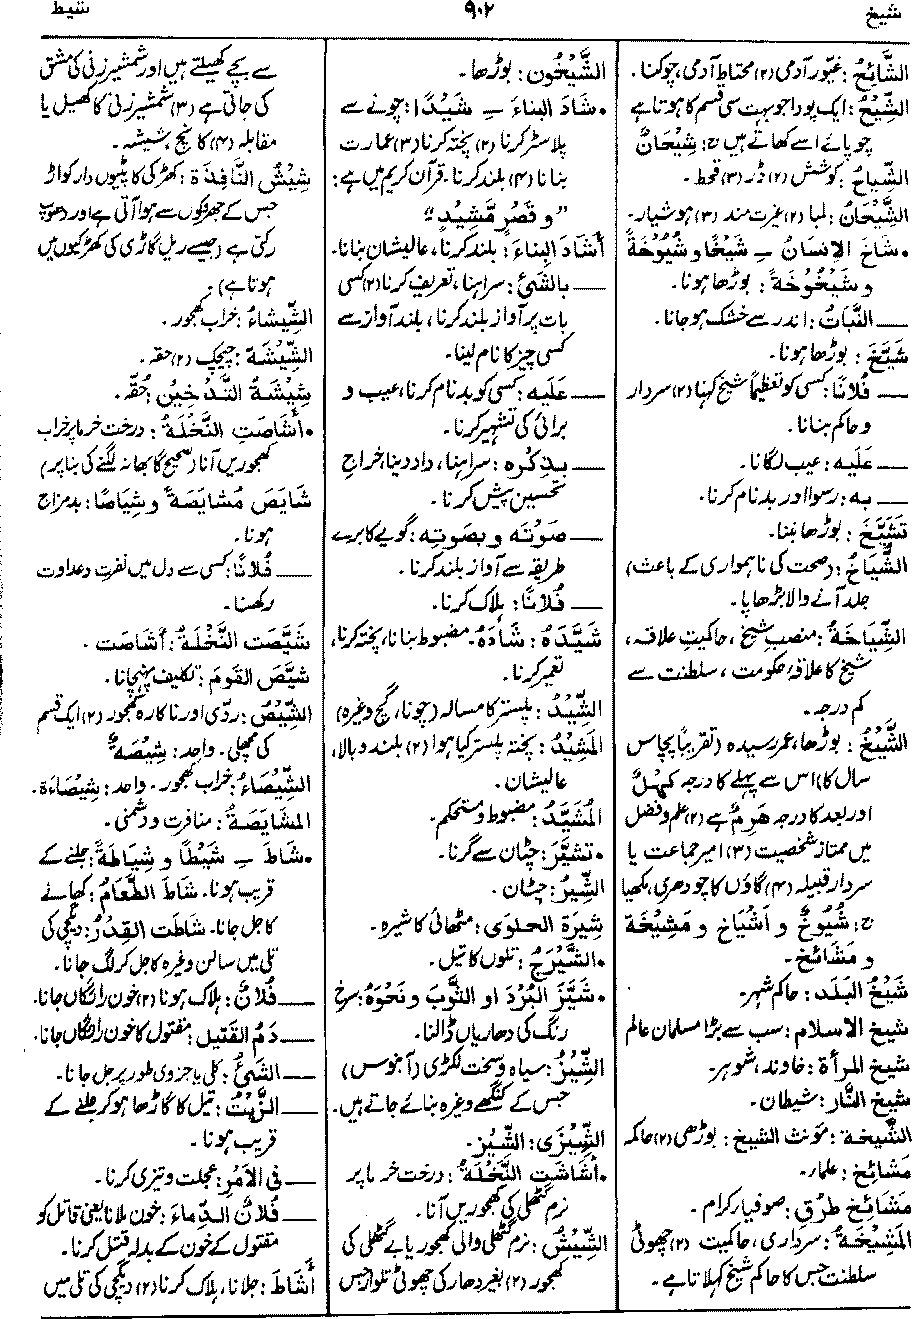 شیخ
۹۰۲
شیط
الشَّائِحُ: غیور آدمی (۲) محتاط آدمی، چوکنا۔
الشِّيْحُ: ایک پودا جو بہت سی قسم کا ہوتا ہے
چوپائے اسے کھاتے ہیں ج: شِيْحَانٌ
الشِّيَاحُ: کوشش (۲) ڈر (۳) قحط۔
الشَّيْحَانُ: لمبا (۲) غیرت مند (۳) ہوشیار۔
•شَاخَ الإنسانُ ــِ شَيْخًا و شُيُوْخَةً
و شَيْخُوْخَةً: بوڑھا ہونا۔
ــــ النَّباتُ: اندر سے خشک ہو جانا۔
شَيَّخَ: بوڑھا ہونا۔
ــــ فُلَانًا: کسی کو تعظیماً شیخ کہنا (۲) سردار
و حاکم بنانا۔
ــــ عَلَيه: عیب لگانا۔
ــــ به: رسوا اور بدنام کرنا۔
تَشَيَّخَ: بوڑھا بننا۔
الشِّيَاخُ: (صحت کی ناہمواری کے باعث)
جلد آنے والا بڑھاپا۔
الشِّيَاخَةُ: منصبِ شیخ، حاکمیتِ علاقہ،
شیخ کا علاقۂ حکومت، سلطنت سے
کم درجہ۔
الشَّيْخُ: بوڑھا، عمر رسیدہ (تقریباً پچاس
سال کا) اس سے پہلے کا درجہ كَهْلٌ
اور بعد کا درجہ هَرِمٌ ہے (۲) علم و فضل
میں ممتاز شخصیت (۳) امیرِ جماعت یا
سردارِ قبیلہ (۴) گاؤں کا چودھری، مُکھیا
ج: شُيُوْخٌ و أَشْيَاخ و مَشْيَخَة
و مَشَائخ۔
شَيْخُ البَلَد: حاکم شہر۔
شیخ الاسلام: سب سے بڑا مسلمان عالم
شیخ المرأة: خاوند، شوہر۔
شیخ النَّار: شیطان۔
الشَّيخة: مؤنث الشیخ: بوڑھی (۲) حاکمہ
مَشَائخ: علماء۔
مَشَائخ طُرُق: صوفیاء کرام۔
المَشْيَخَةُ: سرداری، حاکمیت (۲) چھوٹی
سلطنت جس کا حاکم شیخ کہلاتا ہے۔
الشَّيْخُون: بوڑھا۔
•شَادَ البناءَ ــِ شَيْدًا: چونے سے
پلاسٹر کرنا (۲) پختہ کرنا (۳) عمارت
بنانا (۴) بلند کرنا۔ قرآن کریم میں ہے:
"وَ قَصْرٍ مَّشِيْدٍ"
أَشَادَ البناءَ: بلند کرنا، عالیشان بنانا۔
ــــ بالشَّيْ: سراہنا، تعریف کرنا (۲) کسی
بات پر آواز بلند کرنا، بلند آواز سے
کسی چیز کا نام لینا۔
ــــ عَلَيه: کسی کو بدنام کرنا، عیب و
برائی کی تشہیر کرنا۔
ــــ بِذِكْرِه: سراہنا، داد دینا، خراجِ
تحسین پیش کرنا۔
ــــ صَوْتَه و بصَوْتِه: گویے کا برے
طریقہ سے آواز بلند کرنا۔
ــــ فُلَانًا: ہلاک کرنا۔
شَيَّدَهُ: شَادَهُ۔ مضبوط بنانا، پختہ کرنا،
تعمیر کرنا۔
الشِّيْدُ: پلستر کا مسالہ (چونا، گچ وغیرہ)
المَشِيْدُ: پختہ پلستر کیا ہوا (۲) بلند و بالا،
عالیشان۔
المُشَيَّدُ: مضبوط و مستحکم۔
•تَشَيَّرَ: چٹان سے گرنا۔
الشِّيْرُ: چٹان۔
شِيرَة الحلوى: مٹھائی کا شیرہ۔
•الشَّيْرَجُ: تلوں کا تیل۔
•شَيَّزَ البُرْدَ او الثَّوْبَ و نَحْوَهُ: سرخ
رنگ کی دھاریاں ڈالنا۔
الشِّيْزُ: سیاہ و سخت لکڑی (آبنوس)
جس کے کنگھے وغیرہ بنائے جاتے ہیں۔
الشِّيْزَى: الشِّيْز۔
•أَشَاشَتِ النَّخْلَةُ: درخت خرما پر
نرم گٹھلی کی کھجوریں آنا۔
الشِّيْشُ: نرم گٹھلی والی کھجور یا بے گٹھلی کی
کھجور (۲) بغیر دھار کی چھوٹی تلوار جس
سے بچے کھیلتے ہیں اور شمشیر زنی کی مشق
کی جاتی ہے (۳) شمشیر زنی کا کھیل یا
مقابلہ (۴) کانچ، شیشہ۔
شِيْشُ النَّافِذَة: کھڑکی کا پٹیوں دار کواڑ
جس کے جھروکوں سے ہوا آتی ہے اور دھوپ
رکتی ہے (جیسے ریل گاڑی کی کھڑکیوں میں
ہوتا ہے)۔
الشِّيْشَاءُ: خراب کھجور۔
الشِّيْشَة: چیچک (۲) حقہ۔
شِيْشَةُ التَّدْخِيْن: حُقّہ۔
•أَشَاصَتِ النَّخْلَةُ: درخت خرما پر خراب
کھجوریں آنا (صحیح گابھا نہ لگنے کی بنا پر)
شَايَصَ مُشَايَصَةً و شِيَاصًا: بدمزاج
ہونا۔
ــــ فُلَانًا: کسی سے دل میں نفرت و عداوت
رکھنا۔
شَيَّصَت النَّخْلَةُ: أَشَاصَت۔
شَيَّصَ القَومَ: تکلیف پہنچانا۔
الشِّيْصُ: ردّی اور ناکارہ کھجور (۲) ایک قسم
کی مچھلی۔ واحد: شِيْصَة
الشِّيْصَاءُ: خراب کھجور۔ واحد: شِيْصَاءَة۔
المُشَايَصَةُ: منافرت و دشمنی۔
•شَاطَ ــِ شَيْطًا و شِيَاطَةً: جلنے کے
قریب ہونا۔ شَاطَ الطَّعَامُ: کھانے
کا جل جانا۔ شَاطَت القِدْرُ: دیگچی کی
تلی میں سالن وغیرہ کا جل کر لگ جانا۔
ــــ فُلَانٌ: ہلاک ہونا (۲) خون رائگاں جانا۔
ــــ دَمُ القَتِيل: مقتول کا خون رائگاں جانا۔
ــــ الشَّيْ: کلی یا جزوی طور پر جل جانا۔
ــــ الزَّيْتُ: تیل کا گاڑھا ہو کر جلنے کے
قریب ہونا۔
ــــ فی الأَمْرِ: عجلت و تیزی کرنا۔
ــــ فُلَانٌ الدِّمَاءَ: خون ملانا یعنی قاتل کو
مقتول کے خون کے بدلہ قتل کرنا۔
أَشَاطَ: جلانا، ہلاک کرنا (۲) دیگچی کی تلی میں